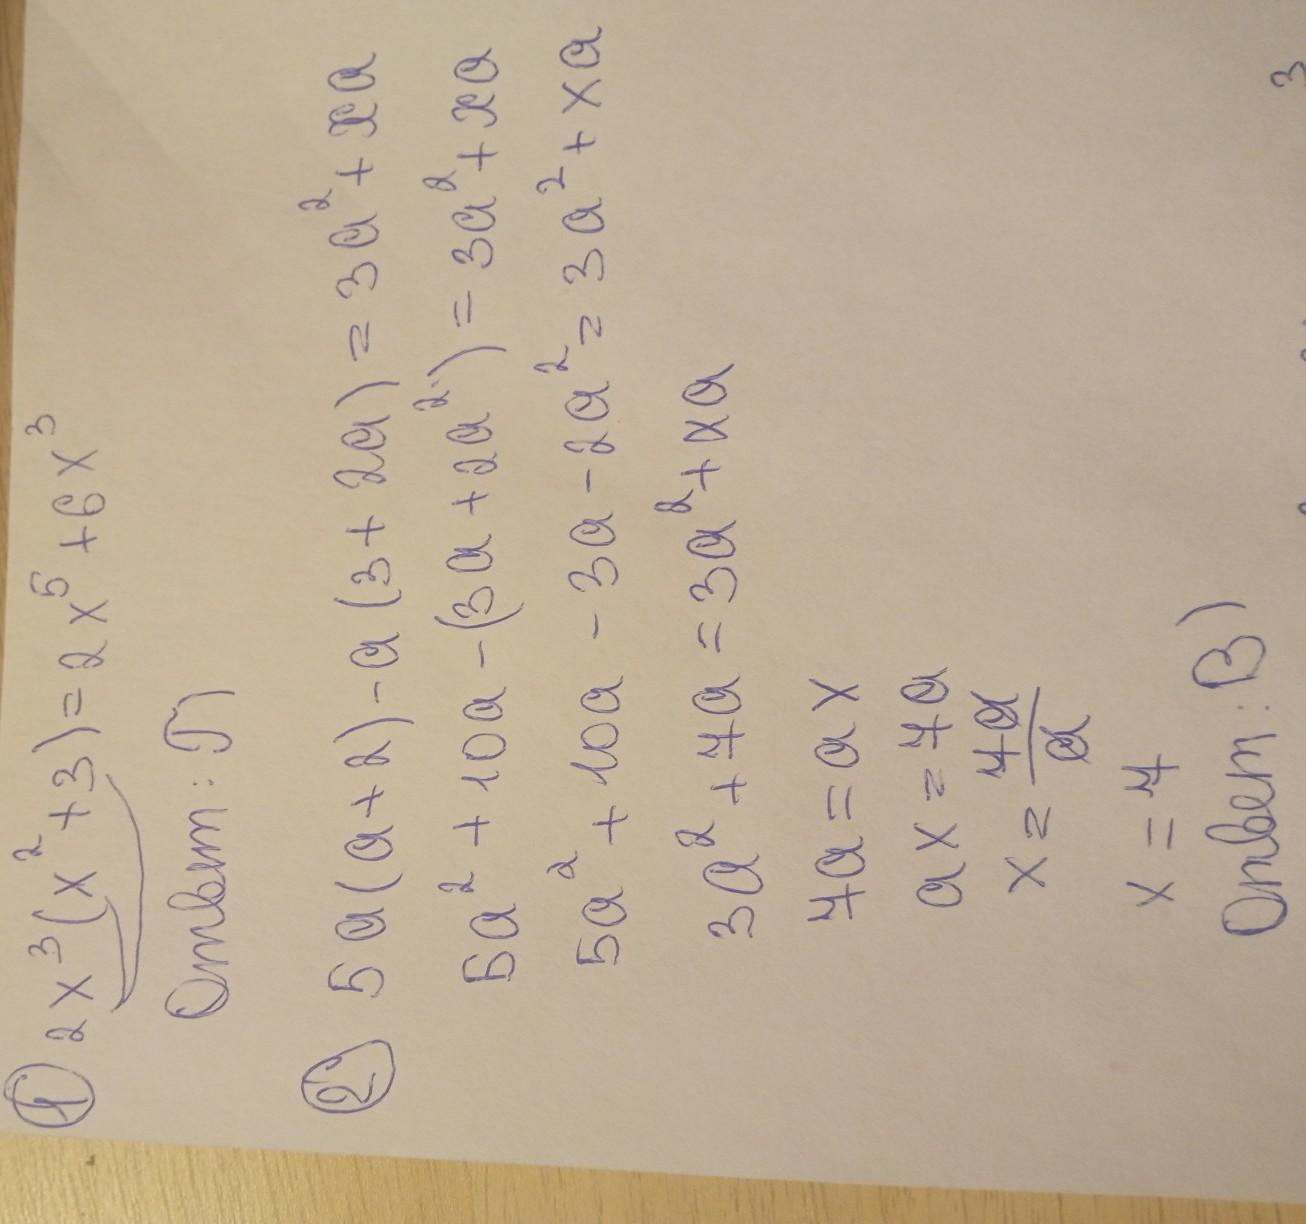 ① 2x³(x²+3)=2x⁵+6x³
Ответ: Г)
② 5a(a+2)-a(3+2a)=3a²+xa
5a²+10a-(3a+2a²)=3a²+xa
5a²+10a-3a-2a²=3a²+xa
3a²+7a=3a²+xa
7a=ax
ax=7a
x=7a/a
x=7
Ответ: В)
3